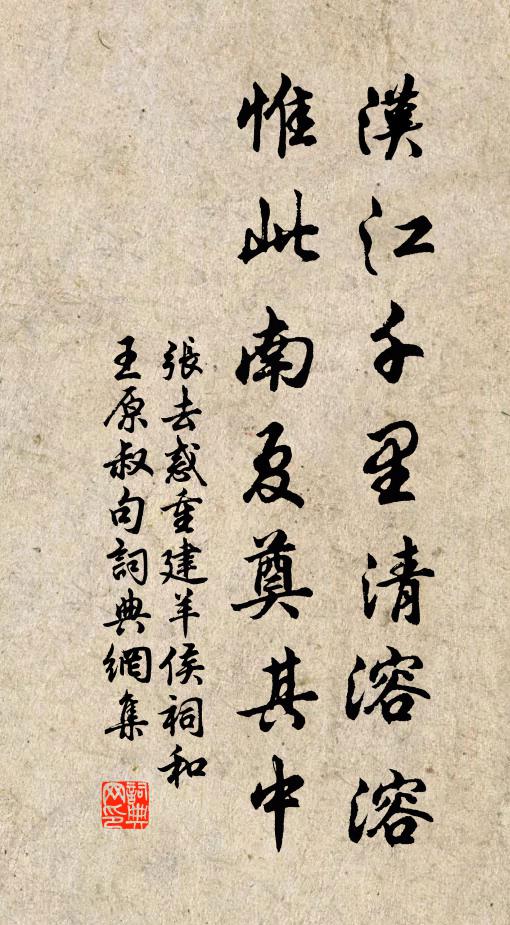 漢江千里清溶溶
惟此南夏奠其中
張去惑重建羊侯祠和
王原叔句詞典網集
詞典网印